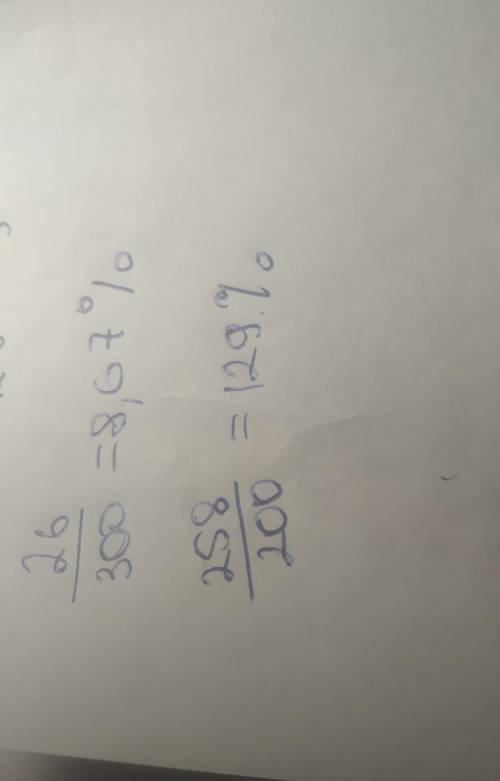 26/300 = 8,67%
258/200 = 129%